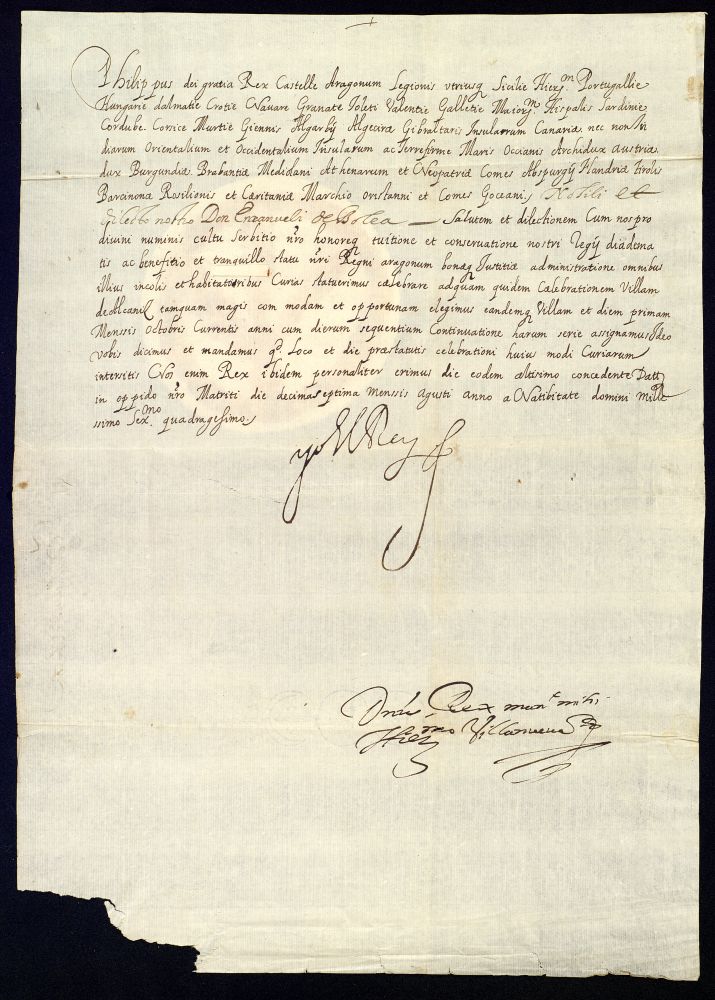 Philippus dei gratia Rex Castelle Aragonum Legionis vtriusq Sicilie Hierm Portugallie
Hungarie dalmatie Crotie Navare Granate Toleti Valentie Galletie Maiorm Hispalis Sardinie
Cordube Corsice Murtie Giennis Algarbij Algeciræ Gibraltaris Insularum Canariæ nec non In
diarum Orientalium et Occidentalium Insularum ac Terreforme Maris Occianis Archidux austriæ
dux Burgundiæ Brabantiæ Medidani Athenarum et Neopatriæ Comes Abspurgij Flandriæ tirolis
Barcinonæ Rosilionis et Cæritaniæ Marchio oristanni et Comes Goceani, Nobili et
dilecto nostro Don Emanueli de Bolea — Salutem et dilectionem Cum nos pro
diuini numinis cultu Serbitio nro honoreq tuitione et conseruatione nostri Regij diadema
tis ac benefitio et tranquillo statu nri Regni aragonum bonæq Justitiæ administratione omnibus
illius incolis et habitatoribus Curias statuerimus cælebrare ad quam quidem Calebrationem Villam
de Alcaniz tamquam magis com modam et opportunam elegimus eandemq Villam et diem primam
Menssis Octobris Currentis anni cum dierum sequentium Continuatione harum serie assignamus Ideo
vobis dicimus et mandamus q Loco et die præstatutis celebrationi huius modi Curiarum
intersitis Nos enim Rex ibidem personaliter erimus die eodem altisimo concedente Datt
in oppido nro Matriti die decima septima menssis Agusti anno a Natibitate domini Mille
ssimo Sexno quadragesimo,
yo El Rey
Dnus Rex mant mihi
Hiermo Villanueua